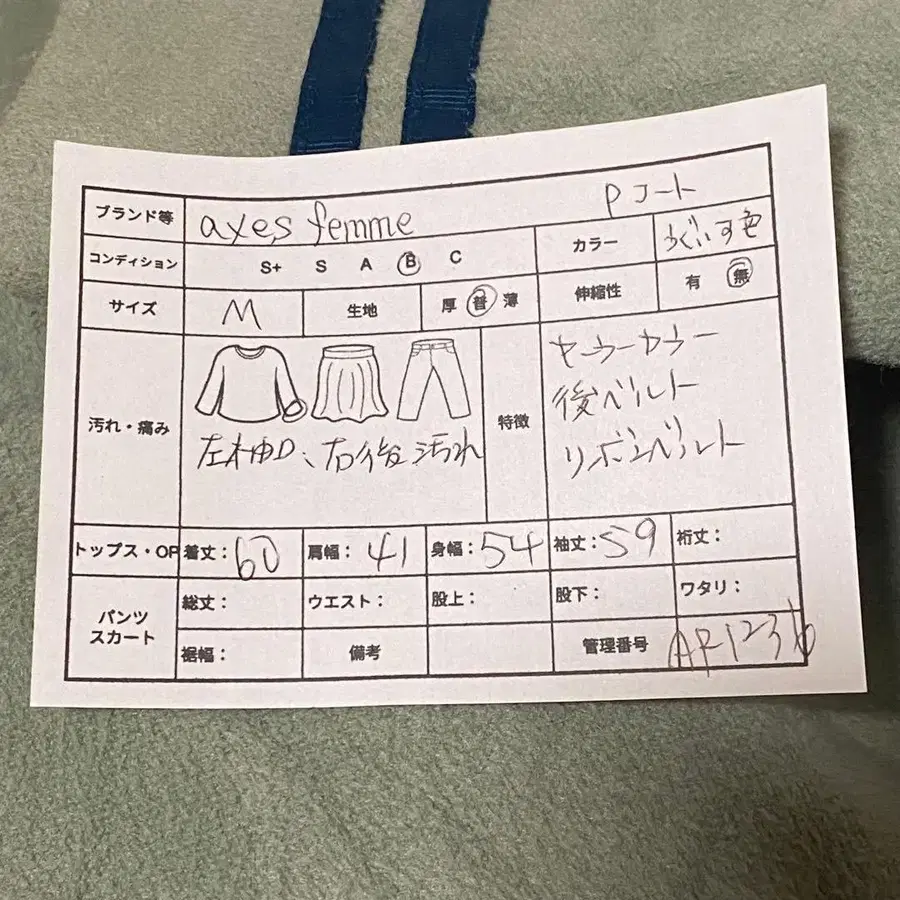 ブランド等 axes femme Pコート
コンディション S+ S A B C カラー うぐいす色
サイズ M 生地 厚 普 薄 伸縮性 有 無
汚れ・痛み 左右袖口、右後汚れ
特徴 セーラーカラー
後ベルト
リボンベルト
トップス・OP 着丈: 60 肩幅: 41 身幅: 54 袖丈: 59 裄丈:
パンツ
スカート
総丈: ウエスト: 股上: 股下: ワタリ:
裾幅: 備考 管理番号 AR1236